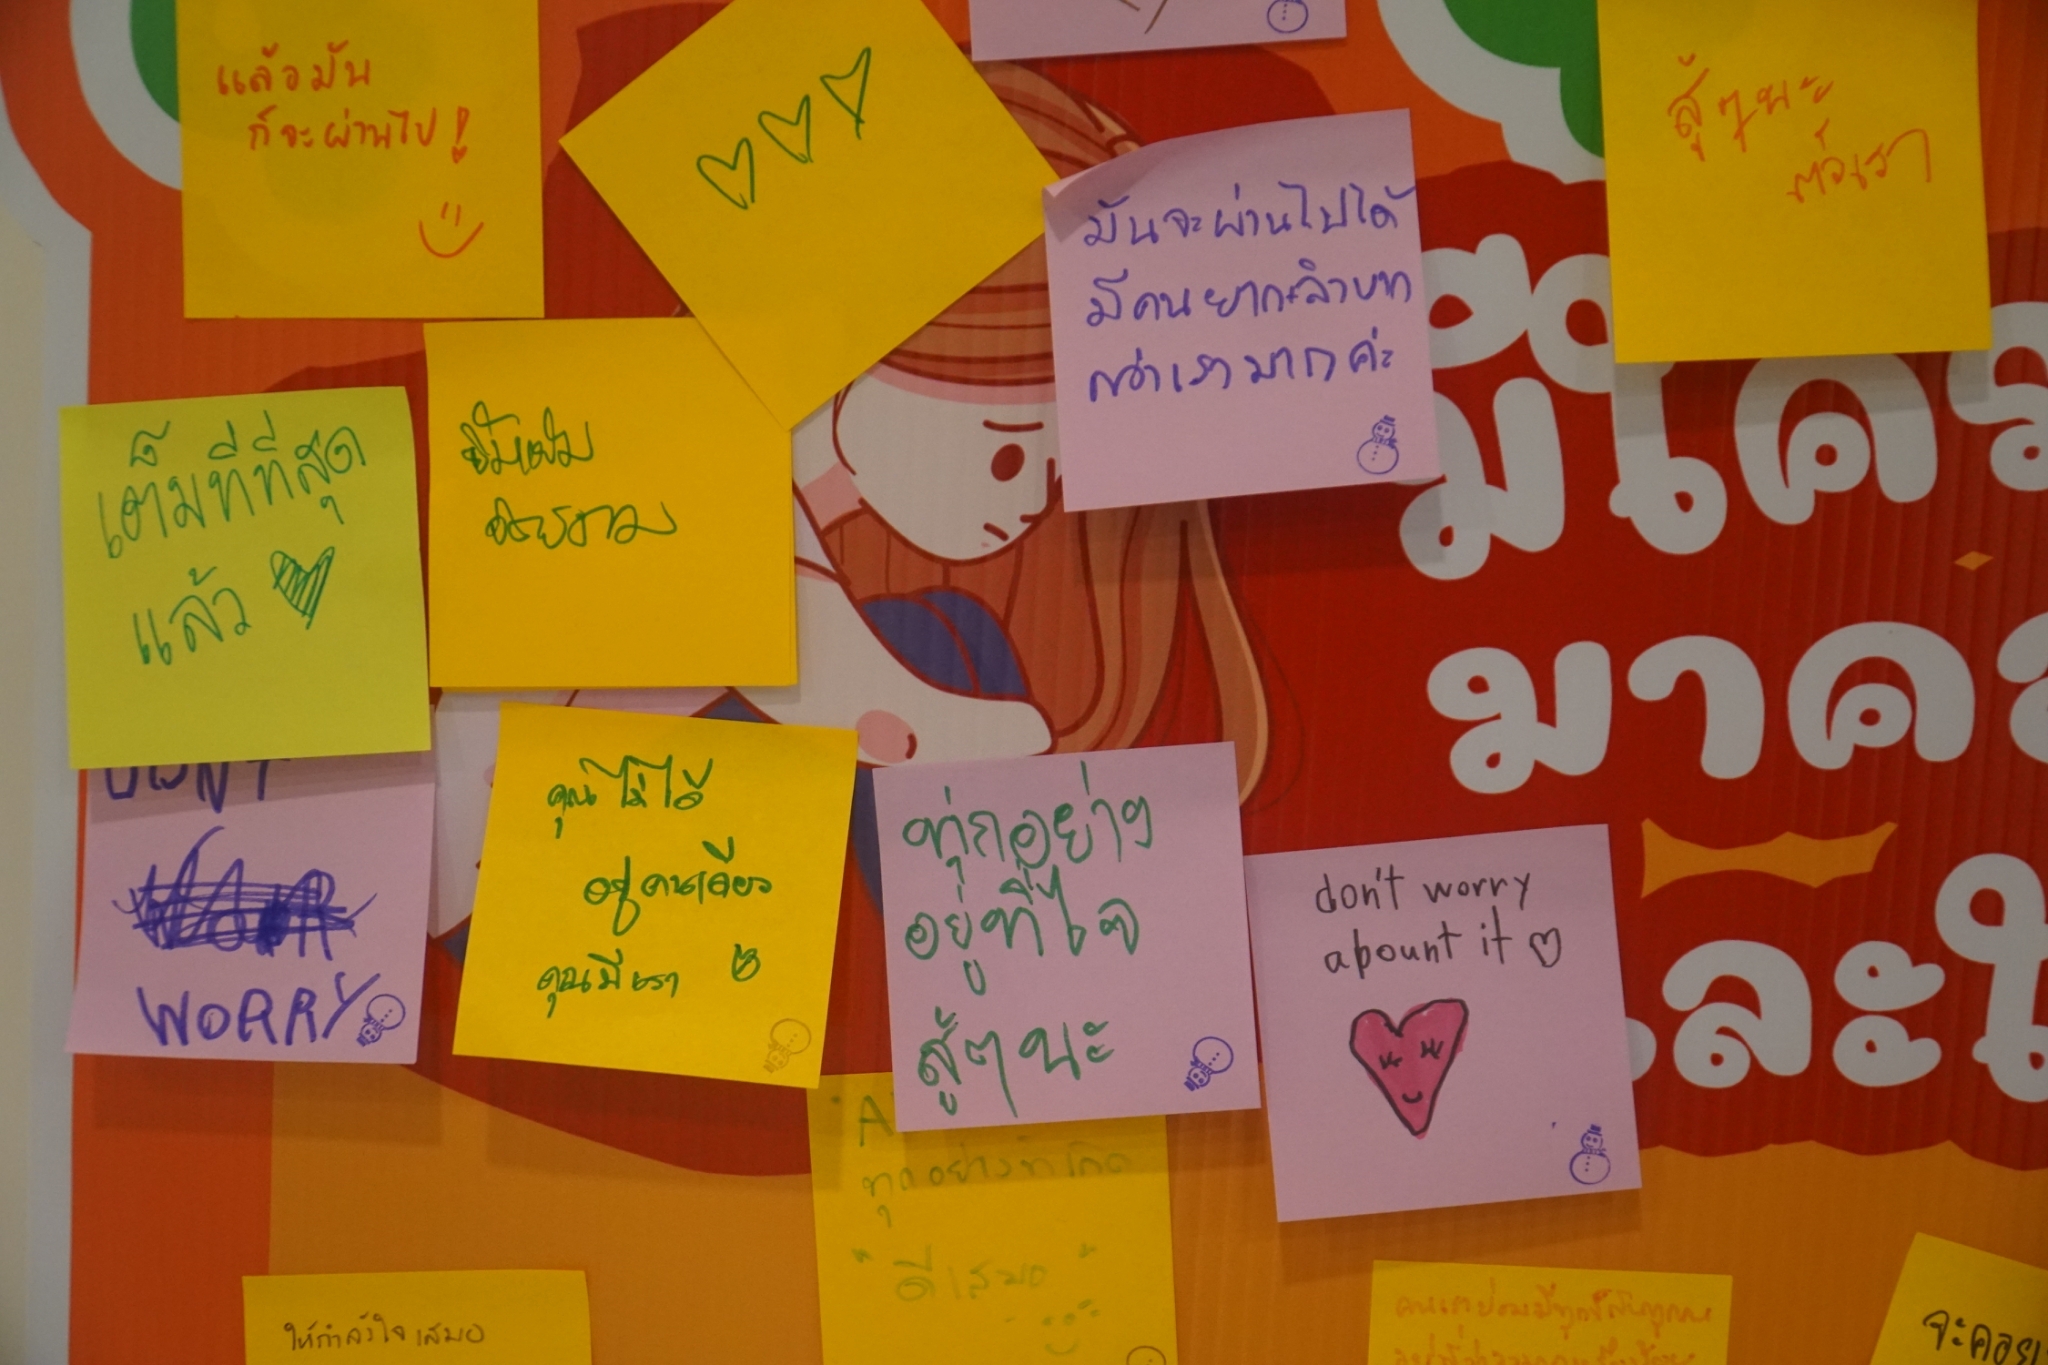 แล้วมัน
ก็จะผ่านไป!
สู้ๆนะ
ตัวเรา
มันจะผ่านไปได้
มีคนยากลำบาก
กว่าเรามากค่ะ
เต็มที่ที่สุด
แล้ว
DON'T
WORRY
คุณไม่ได้
อยู่คนเดียว
คุณมีเรา
ทุกอย่าง
อยู่ที่ใจ
สู้ๆ นะ
don't worry
abount it
มีใคร
มาค
และ
ทุกอย่างที่เกิด
"ดีเสมอ"
ให้กำลังใจเสมอ
จะคอย